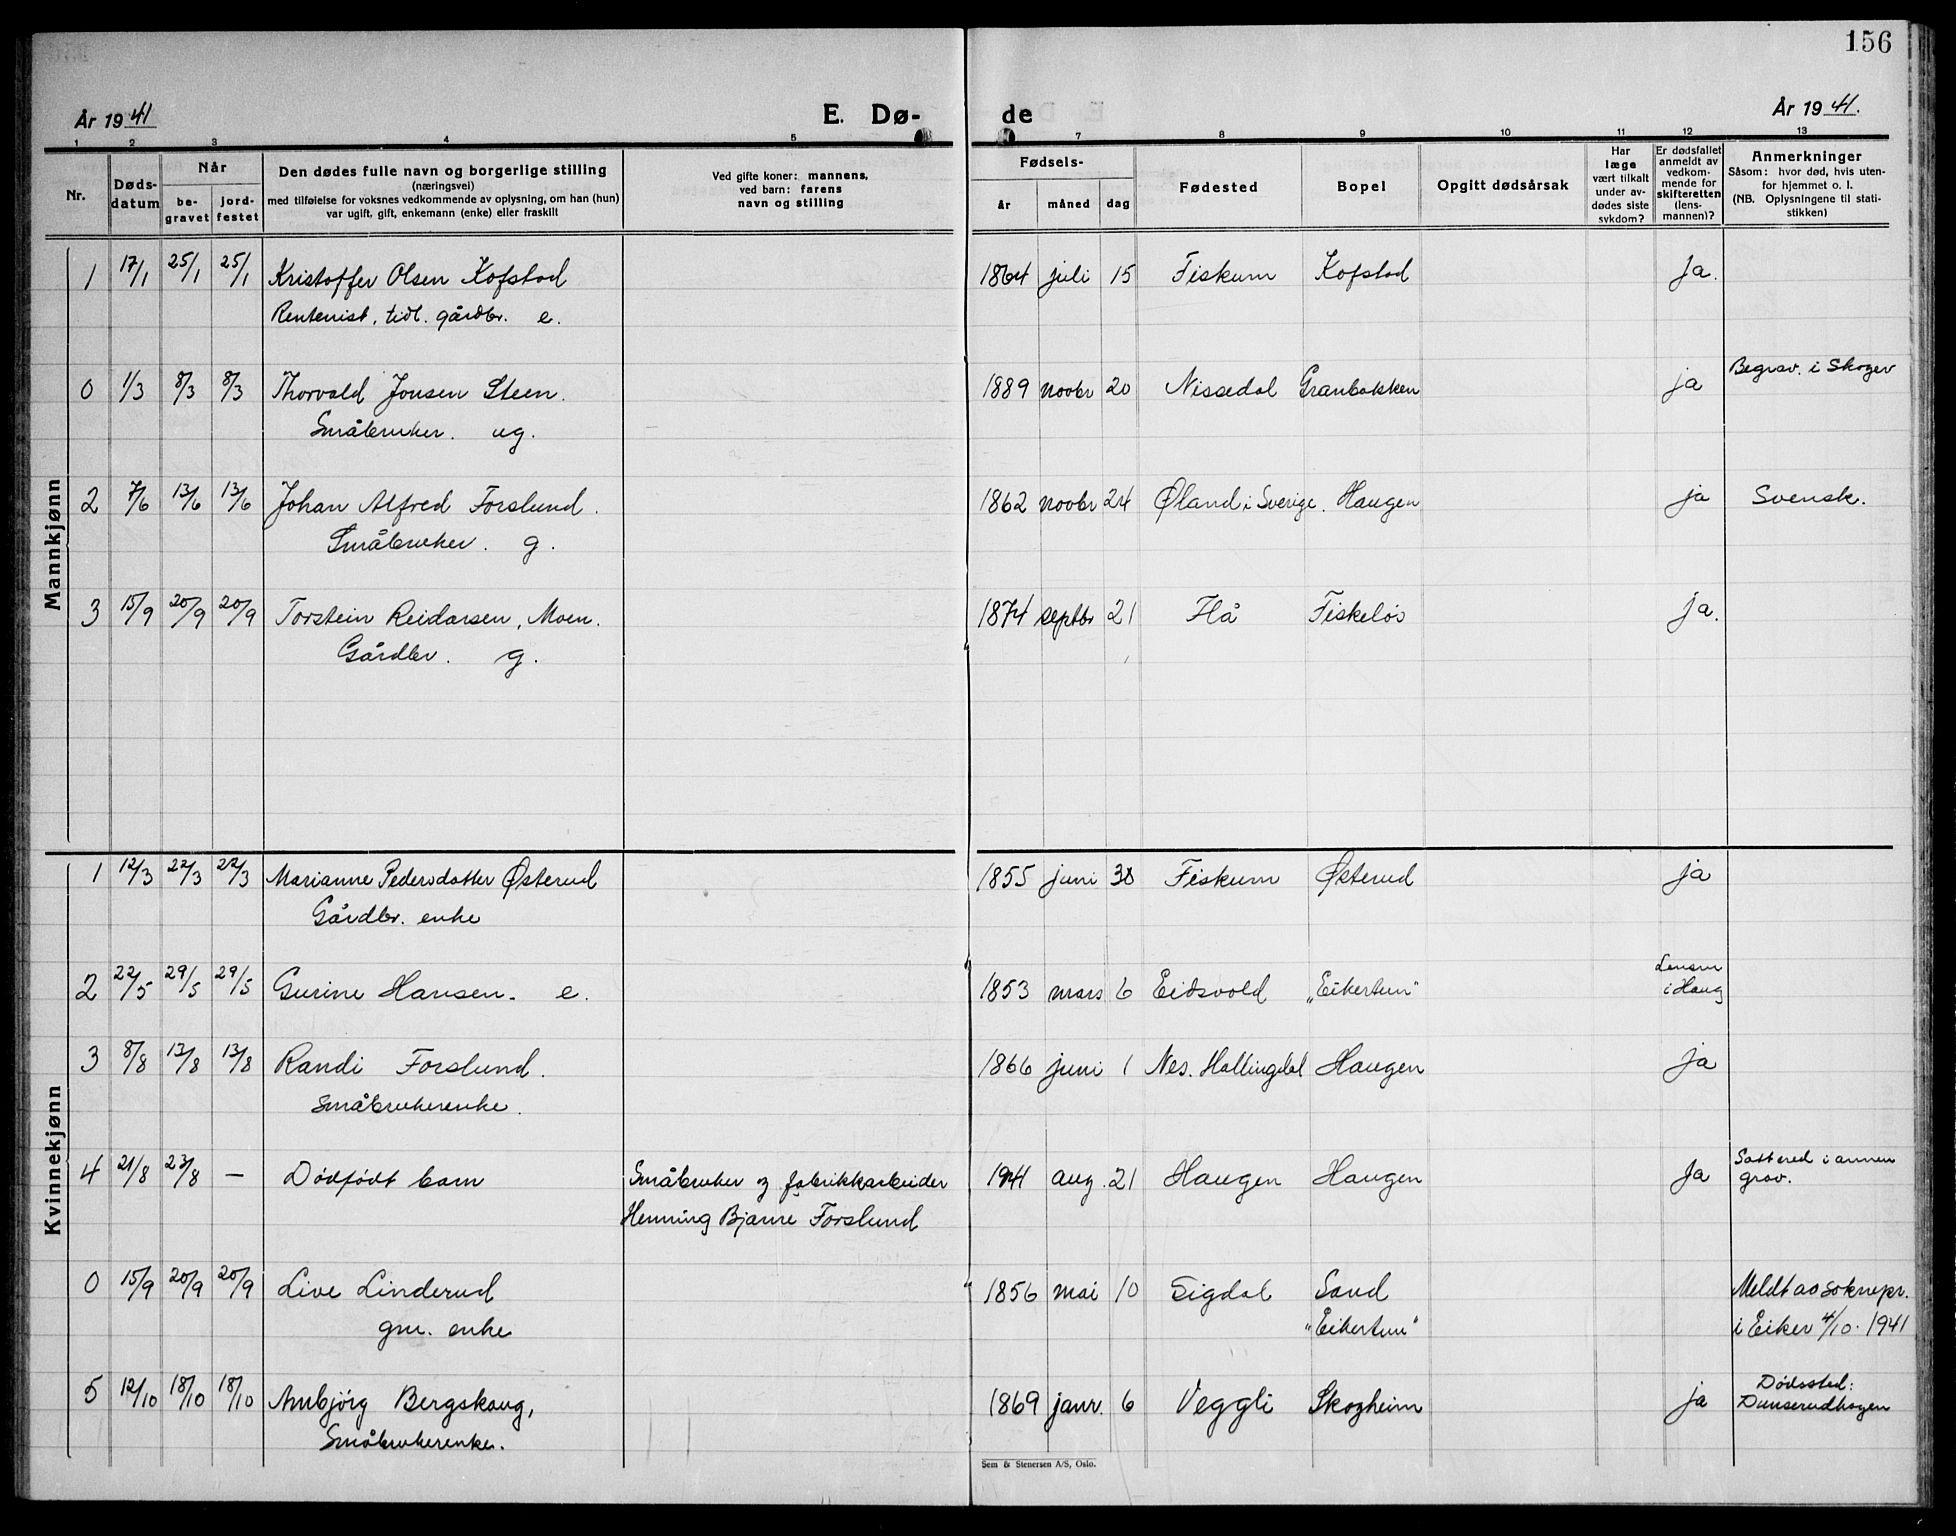 156
År 1941
E. Dø-
de
År 1941.
1 2 3 4 5 7 8 9 10 11 12 13
Nr.
Døds-
datum
Når
be-
gravet
jord-
festet
Den dødes fulle navn og borgerlige stilling
(næringsvei)
med tilføielse for voksnes vedkommende av oplysning, om han (hun)
var ugift, gift, enkemann (enke) eller fraskilt
Ved gifte koner: mannens,
ved barn: farens
navn og stilling
Fødsels-
år måned dag
Fødested
Bopel
Opgitt dødsårsak
Har
læge
vært tilkalt
under av-
dødes siste
sykdom?
Er dødsfallet
anmeldt av
vedkom-
mende for
skifteretten
(lens-
mannen)?
Anmerkninger
Såsom: hvor død, hvis uten-
for hjemmet o. l.
(NB. Oplysningene til stati-
stikken)
Mannkjønn
1 17/1 25/1 25/1 Kristoffer Olsen Kofstad 1864 juli 15 Fiskum Kofstad ja.
Rentenist, tidl. gårdbr. e.
0 1/3 8/3 8/3 Thorvald Jonsen Steen. 1889 novbr 20 Nissedal Granbakken ja Begrav. i Skoger
Småbruker. ug.
2 7/6 13/6 13/6 Johan Alfred Forslund. 1862 novbr 24 Øland i Sverige. Haugen ja Svensk.
Småbruker. g.
3 15/9 20/9 20/9 Torstein Reidarsen, Moen. 1874 septbr 21 Flå Fiskeløs ja.
Gårdbr. g.
Kvinnekjønn
1 12/3 22/3 22/3 Marianne Pedersdatter Østerud 1855 juni 30 Fiskum Østerud ja
Gårdbr. enke
2 22/5 29/5 29/5 Gurine Hansen. e. 1853 mars 6 Eidsvold "Eikertun" Lensm
i Haug
3 8/8 13/8 13/8 Randi Forslund. 1866 juni 1 Nes. Hallingdal Haugen ja
Småbrukerenke.
4 21/8 23/8 — Dødfødt barn Småbruker og fabrikkarbeider 1941 aug. 21 Haugen Haugen Ja Satt ned i annen
grav.
Henning Bjarne Forslund
0 15/9 20/9 20/9 Live Linderud 1856 mai 10 Sigdal Sand Meldt av soknepr.
gm. enke "Eikertun" i Eiker 4/10. 1941
5 12/10 18/10 18/10 Ambjörg Bergskaug, 1869 janr. 6 Veggli Skogheim ja Dødssted:
Dunserudhagen
Småbrukerenke.
Sem & Stenersen A/S, Oslo.